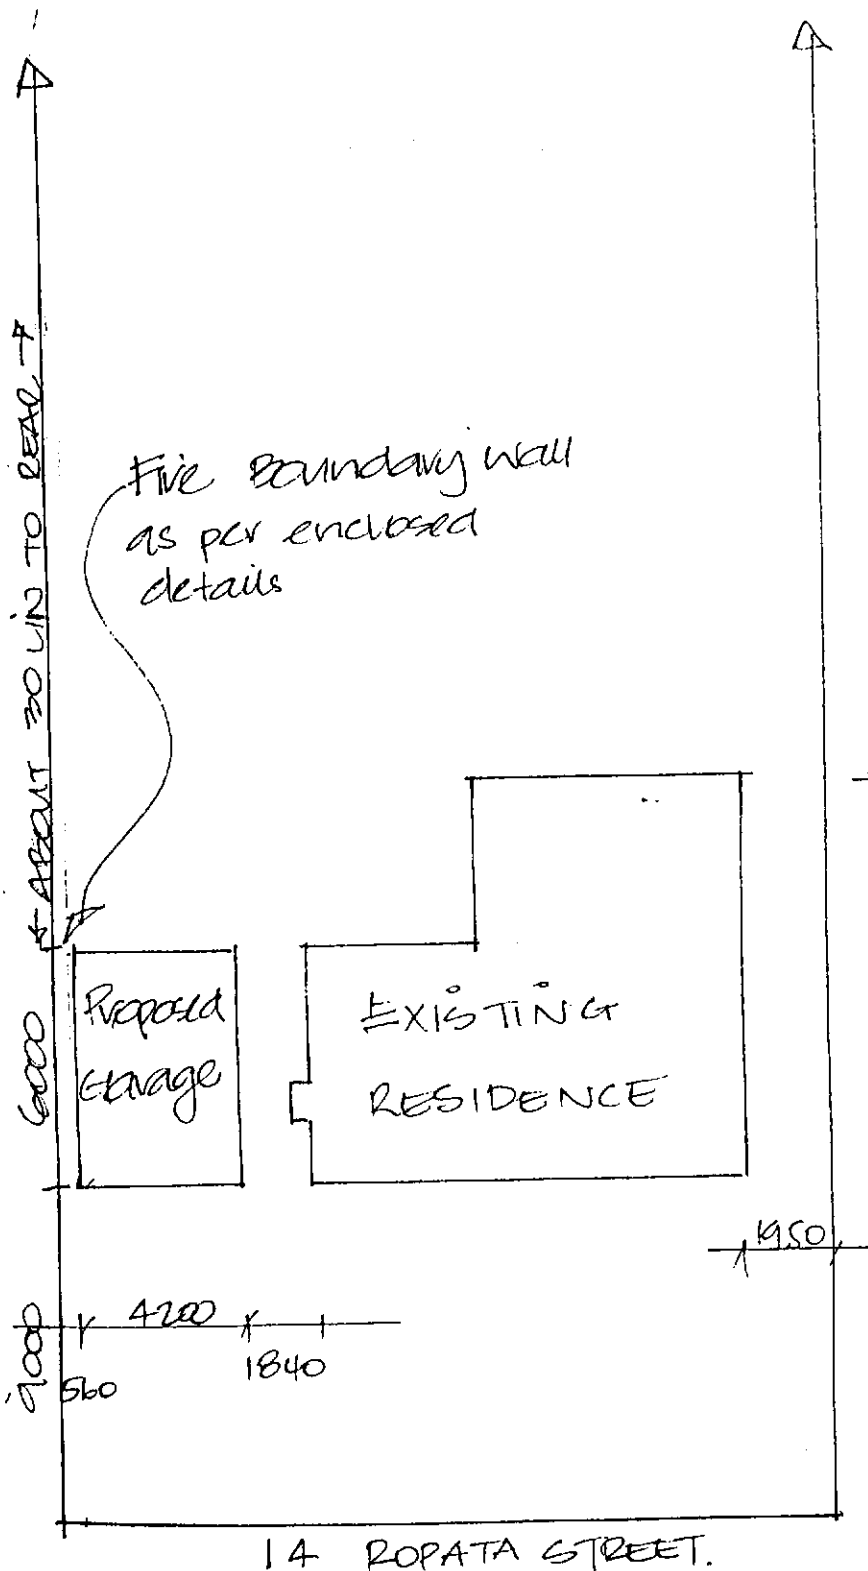 ← ABOUT 30 LIN TO REAR →
Fire Boundary wall
as per enclosed
details
Proposed
Garage
EXISTING
RESIDENCE
6000
1950
9000
4200
560
1840
14 ROPATA STREET.